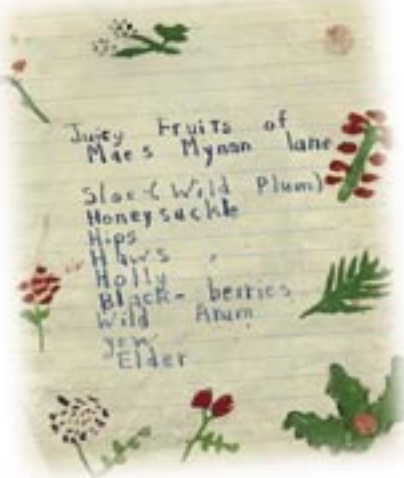 Juicy Fruits of
Maes Mynan lane
Sloe (Wild Plum)
Honeysuckle
Hips
Haws
Holly
Black-berries
Wild Arum
Yew
Elder